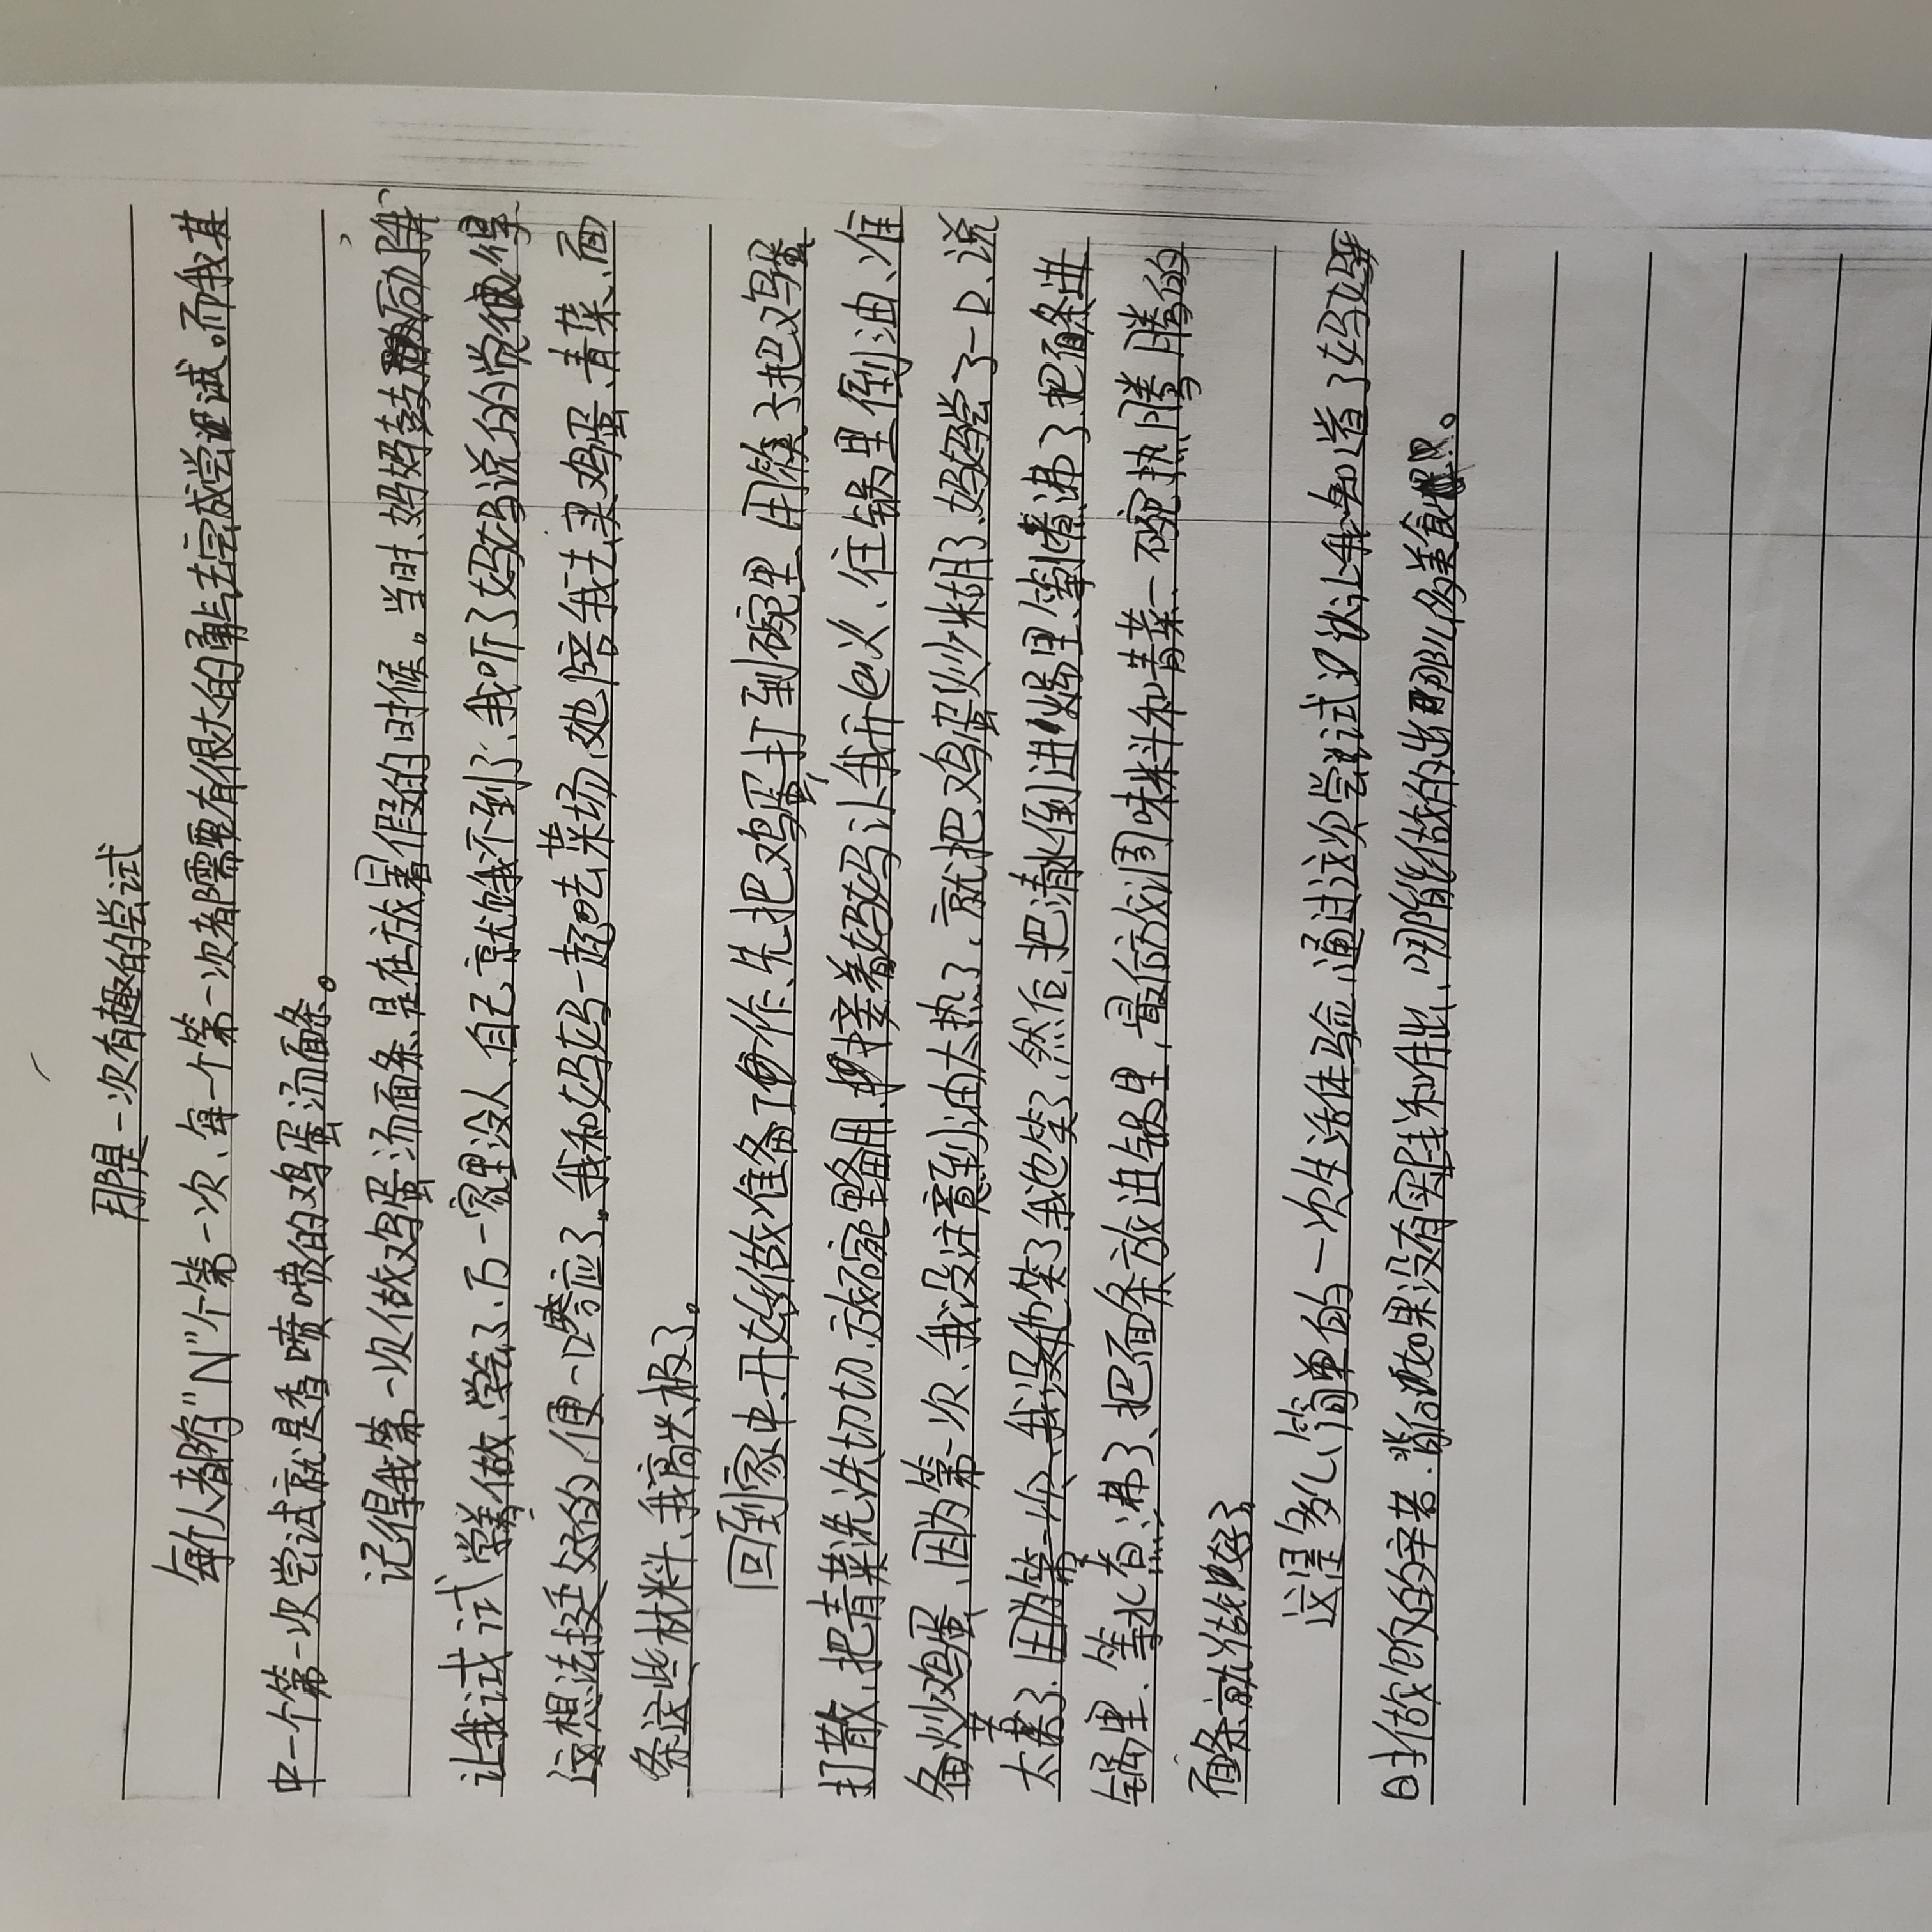 那是一次有趣的尝试
每个人都有"N"个第一次、每一个第一次都需要有很大的勇去完成尝试。而我其
中一个第一次尝试就是香喷喷的鸡蛋汤面条。
记得我第一次做鸡蛋汤面条、是在放暑假的时候。当时、妈妈鼓励
让我试试学着做、学会了、万一家里没人、自己就饿不到了、我听了妈妈说的觉得
这想法挺好的、便一口答应了。我和妈妈一起去菜场、她陪我去买鸡蛋、青菜、面
条这些材料、我高兴极了。
回到家中、开始做准备工作、先把鸡蛋打到碗里、用筷子把鸡蛋
打散、把青菜洗洗切切、放碗里备用、接着妈妈让我开色火、往锅里倒油、准
备炒鸡蛋、因为第一次、我没注意到油太热了、就把鸡蛋炒糊了、妈妈尝了一口、说
太苦了、我也笑了、然后、把清水倒进锅里、等沸了、把面条进
锅里、等水煮沸了、把面条放进锅里、最后放调味料和青菜、一碗热腾腾的
面条就做好了
这是多么简单的一次生活体验、通过这次尝试让我知道了妈妈
日才做饭的辛苦、如果没有实践和付出、哪能做的出那么多美食呢。